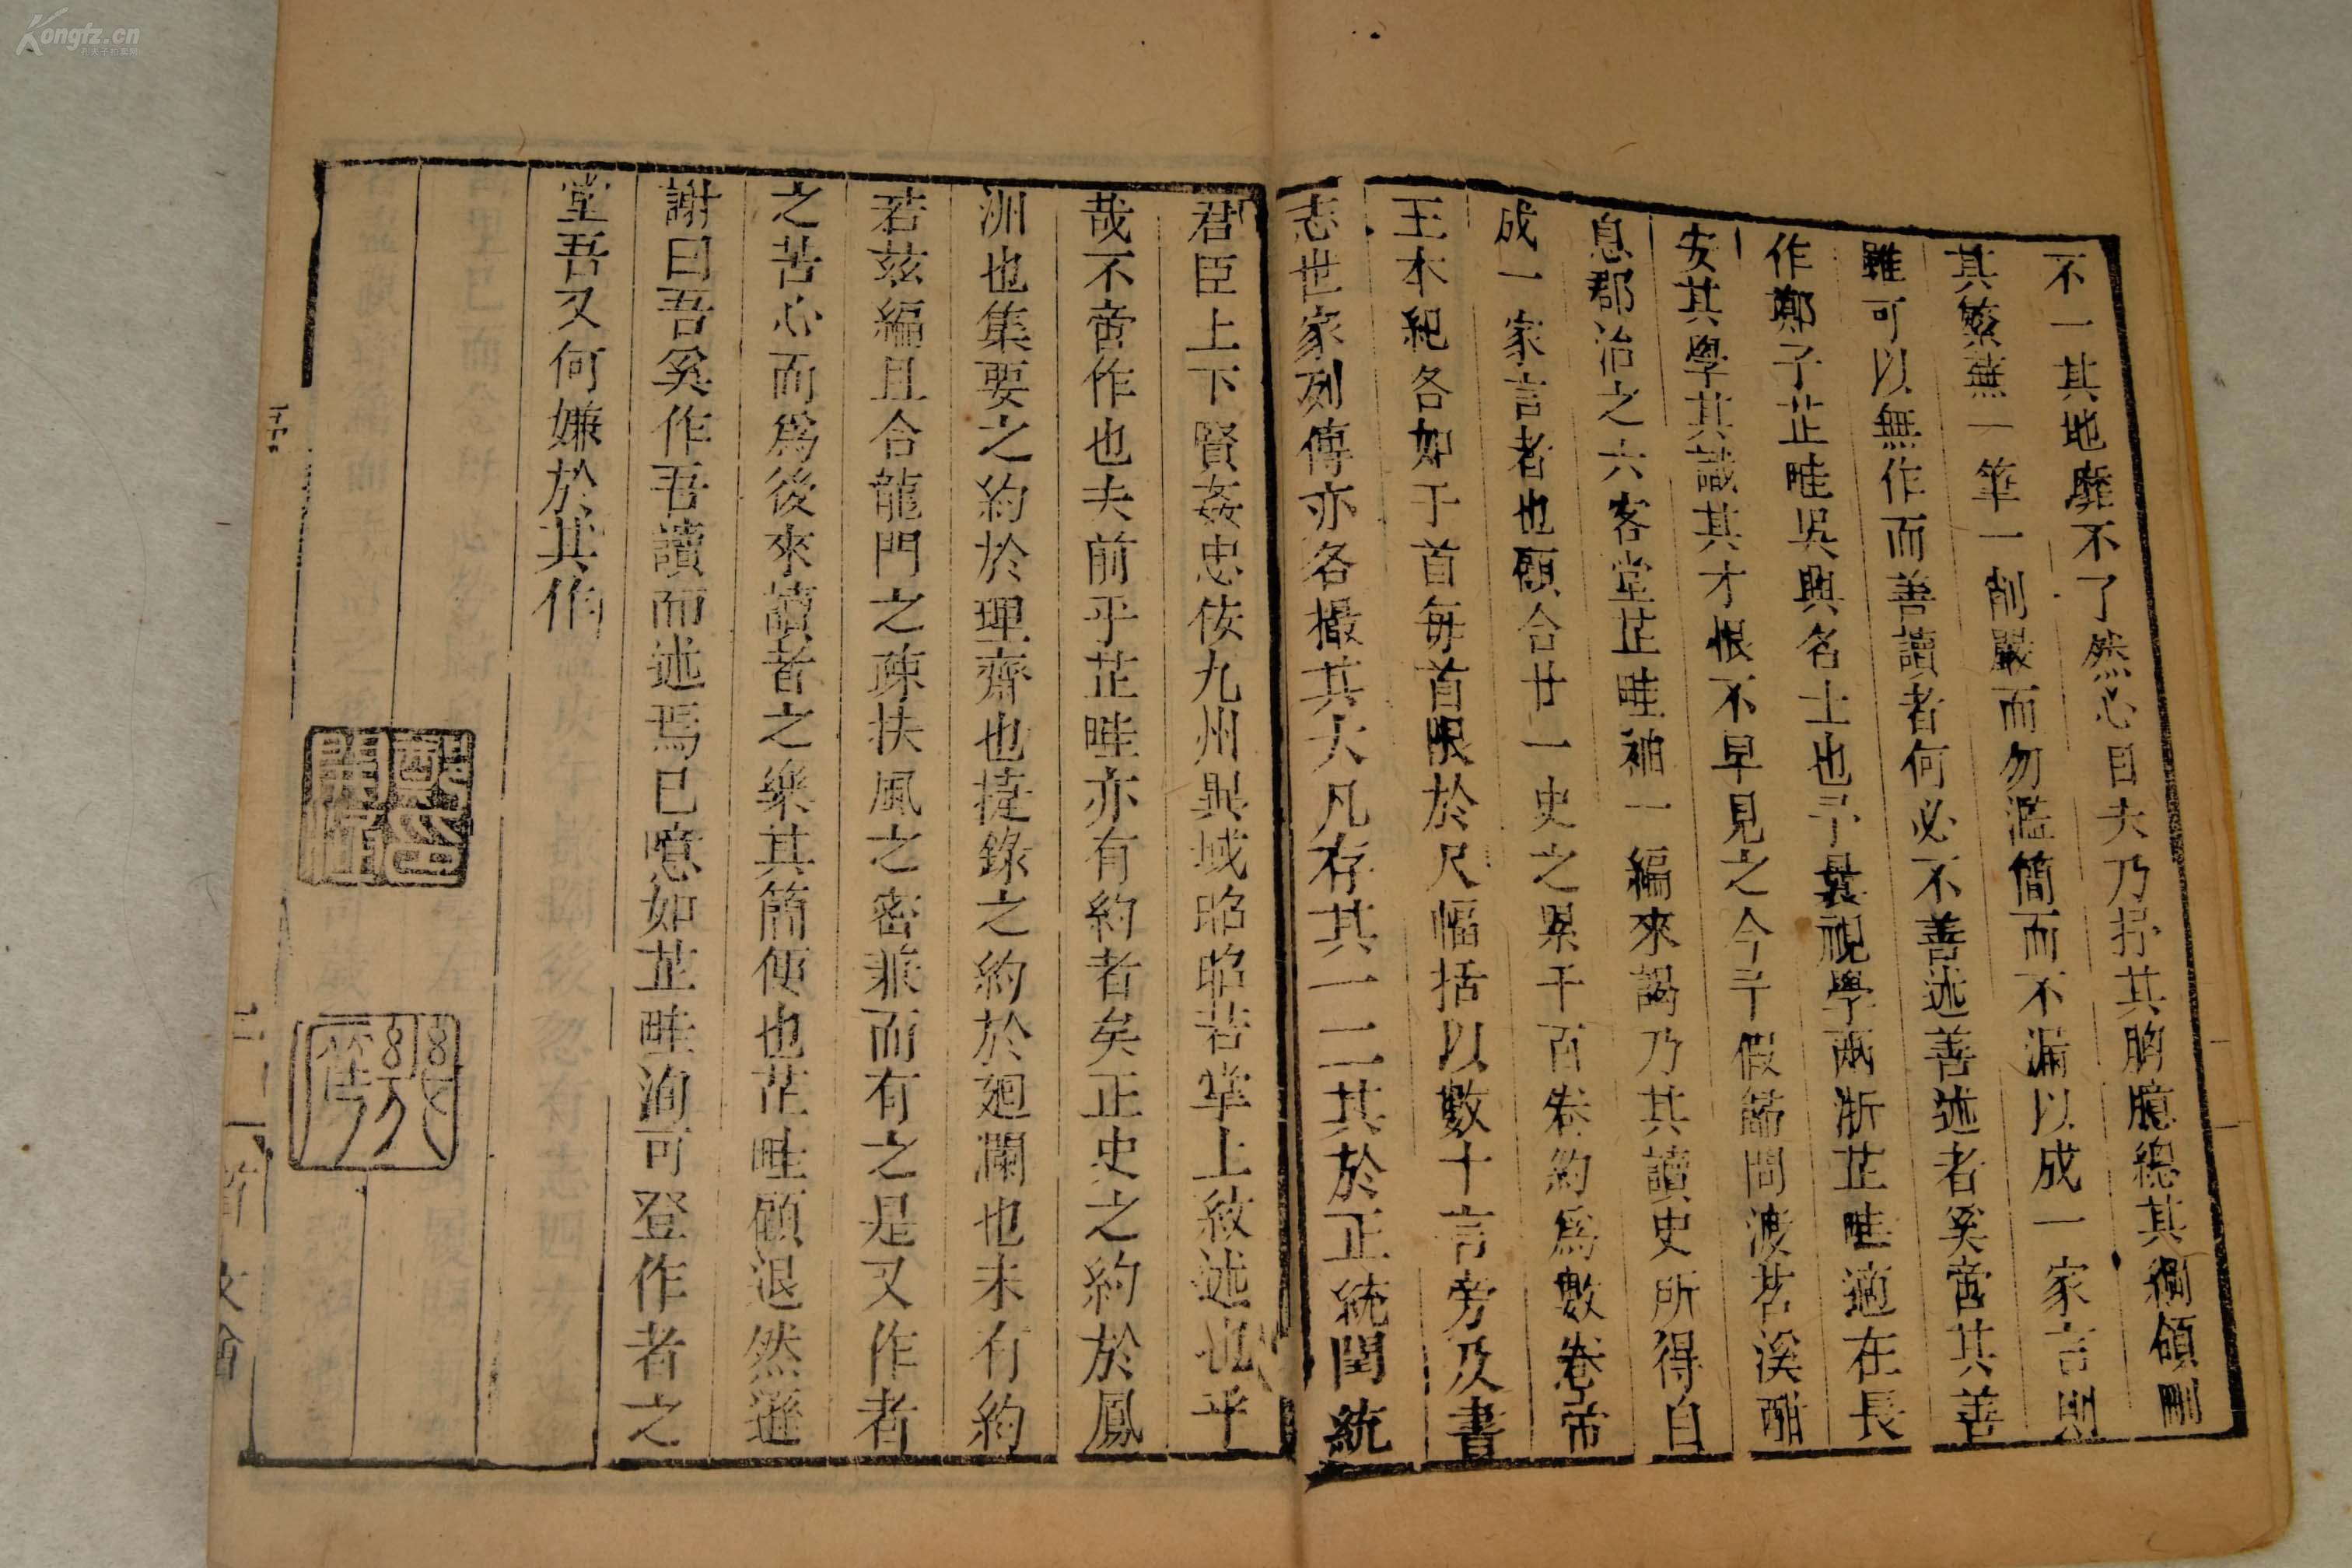 不一其地靡不了然心目夫乃抒其胸臆總其綱領剛
其繁蕪一筆一削嚴而勿濫簡而不漏以成一家言則
雖可以無作而善讀者何必不善述善述者奚啻其善
作鄭子芷畦吳興名士也予曩視學兩浙芷畦適在長
安其學其識其才恨不早見之今予假歸問渡苕溪
息郡治之六客堂芷畦袖一編來謁乃其讀史所得自
成一家言者也願合廿一史之累千百卷約為數卷帝
王本紀各如于首每首限於尺幅括以數十言旁及書
志世家列傳亦各撮其大凡存其一二其於正統閏統
君臣上下賢姦忠佞九州異域昭昭若掌上紋述也乎
哉不啻作也夫前乎芷畦亦有約者矣正史之約於鳳
洲也集要之約於理齋也捷錄之約於廻瀾也未有約
若茲編且合龍門之疎扶風之密兼而有之是又作者
之苦心而為後來讀者之樂其簡便也芷畦顧退然遜
謝曰吾奚作吾讀而述焉已噫如芷畦洵可登作者之
堂吾又何嫌於其作
Kongfz.cn